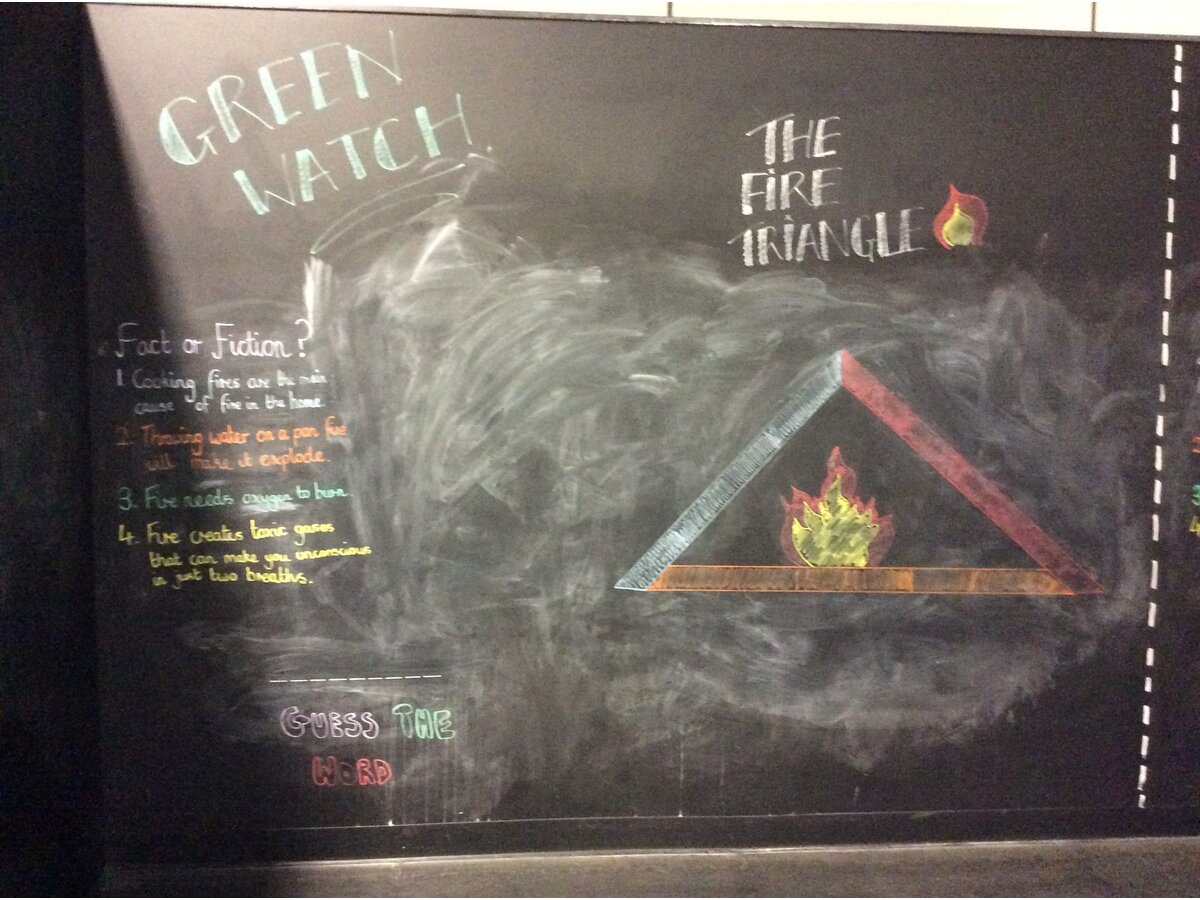 GREEN
WATCH
THE
FIRE
TRIANGLE
Fact or Fiction?
1 Cooking fires are the main
cause of fire in the home.
2. Throwing water on a pan fire
will make it explode.
3. Fire needs oxygen to burn.
4. Fire creates toxic gases
that can make you unconscious
in just two breaths.
GUESS THE
WORD